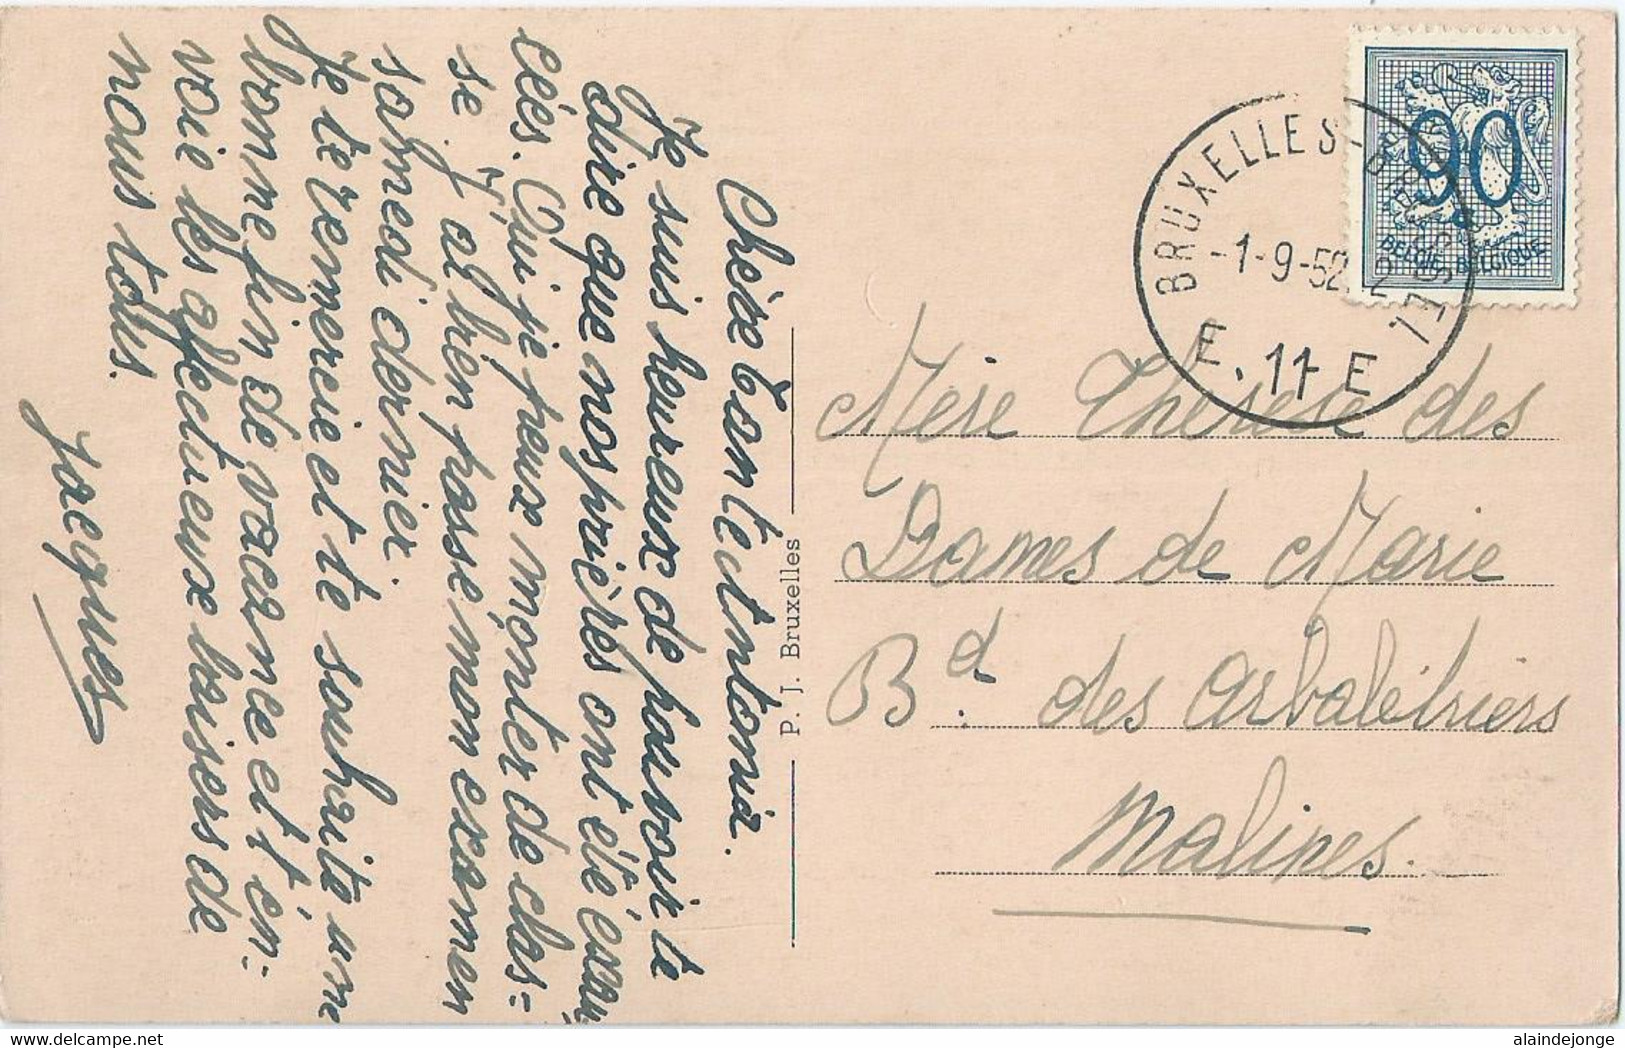 Chère Tante Antonia.
Je suis heureux de pouvoir te
dire que nos prières ont été exau
cées. Oui je peux monter de clas=
se. J'ai bien passé mon examen
samedi dernier.
Je te remercie et te souhaite un
bonne fin de vacance et t'en=
voie les affectueux baisers de
nous tous.
Jacques
P. J. Bruxelles
BRUXELLES
BRUSSEL
-1-9-52
E. 11 E
90
BELGIE-BELGIQUE
Mère Thérèse des
Dames de Marie
Bd. des Arbalétriers
Malines.
alaindejonge